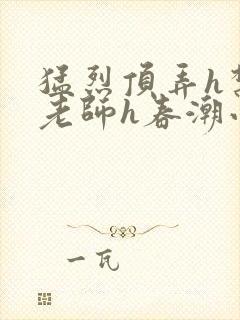 猛烈頂弄h
老師h春潮
一瓦